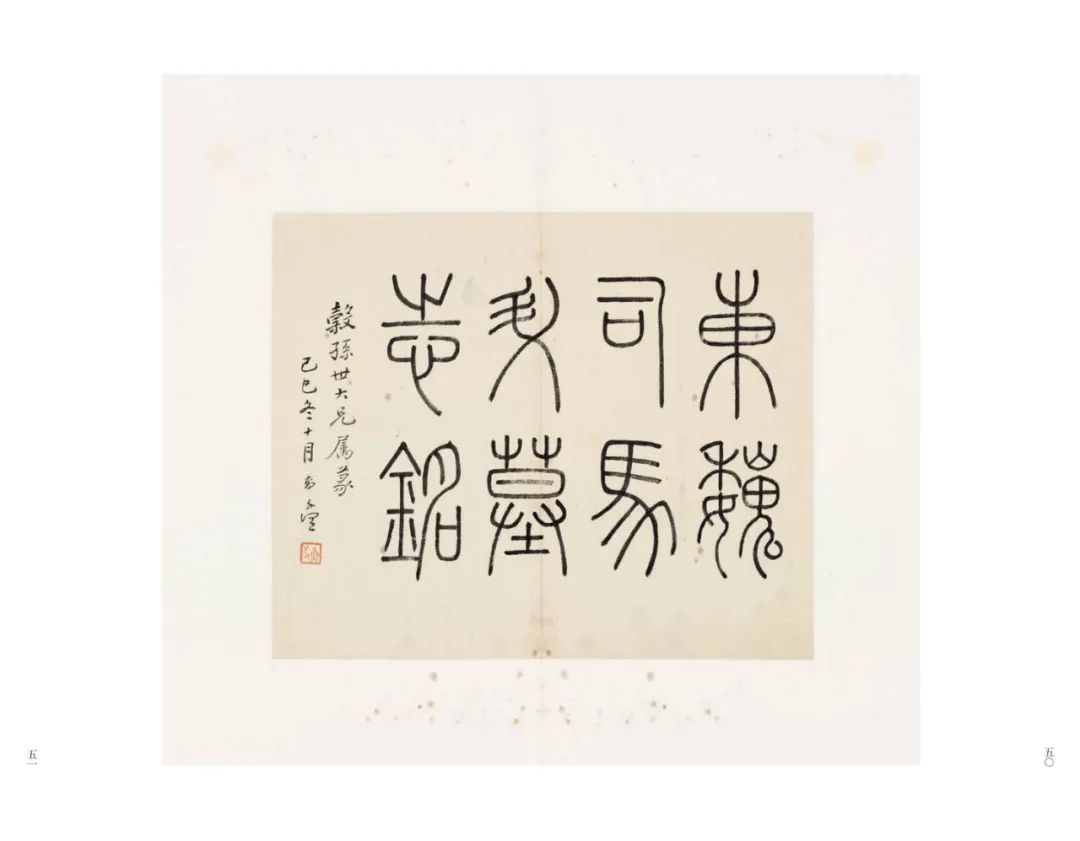 東魏
司馬
升墓
志銘
穀孫世大兄属篆
己巳冬十月
五〇
五一